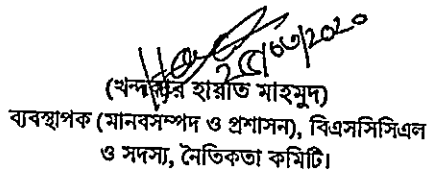 ২৫/০৩/২০২০
(খন্দকার হায়াত মাহমুদ)
ব্যবস্থাপক (মানবসম্পদ ও প্রশাসন), বিএসসিসিএল
ও সদস্য, নৈতিকতা কমিটি।